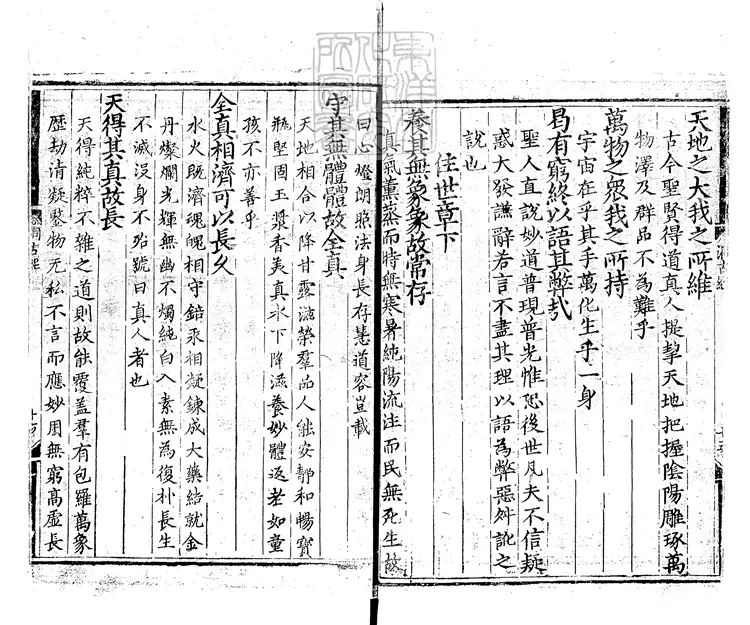 天地之大我之所維
古今聖賢得道真人提挈天地把握陰陽雕琢萬
物澤及群品不為難乎
萬物之衆我之所持
宇宙在乎其手萬化生乎一身
曷有窮終以語其弊哉
聖人直說妙道普現普光惟恐後世凡夫不信疑
惑大發謙辭若言不盡其理以語為弊惡舛訛之
說也
住世章下
養其無象象故常存
真氣薰蒸而時無寒暑純陽流注而民無死生故
曰心燈朗照法身長存慧道容豈載
守其無體體故全真
天地相合以降甘露滋榮羣品人能安靜和暢寶
瓶堅固玉漿香美真水下降滋養妙體返老如童
孩不亦善乎
全真相濟可以長久
水火既濟魂魄相守鉛汞相凝鍊成大藥結就金
丹燦爛光輝無幽不燭純白入素無為復朴長生
不滅沒身不殆號曰真人者也
天得其真故長
天得純粹不雜之道則故能覆蓋羣有包羅萬象
歷劫清凝鑒物无私不言而應妙用無窮高虛長